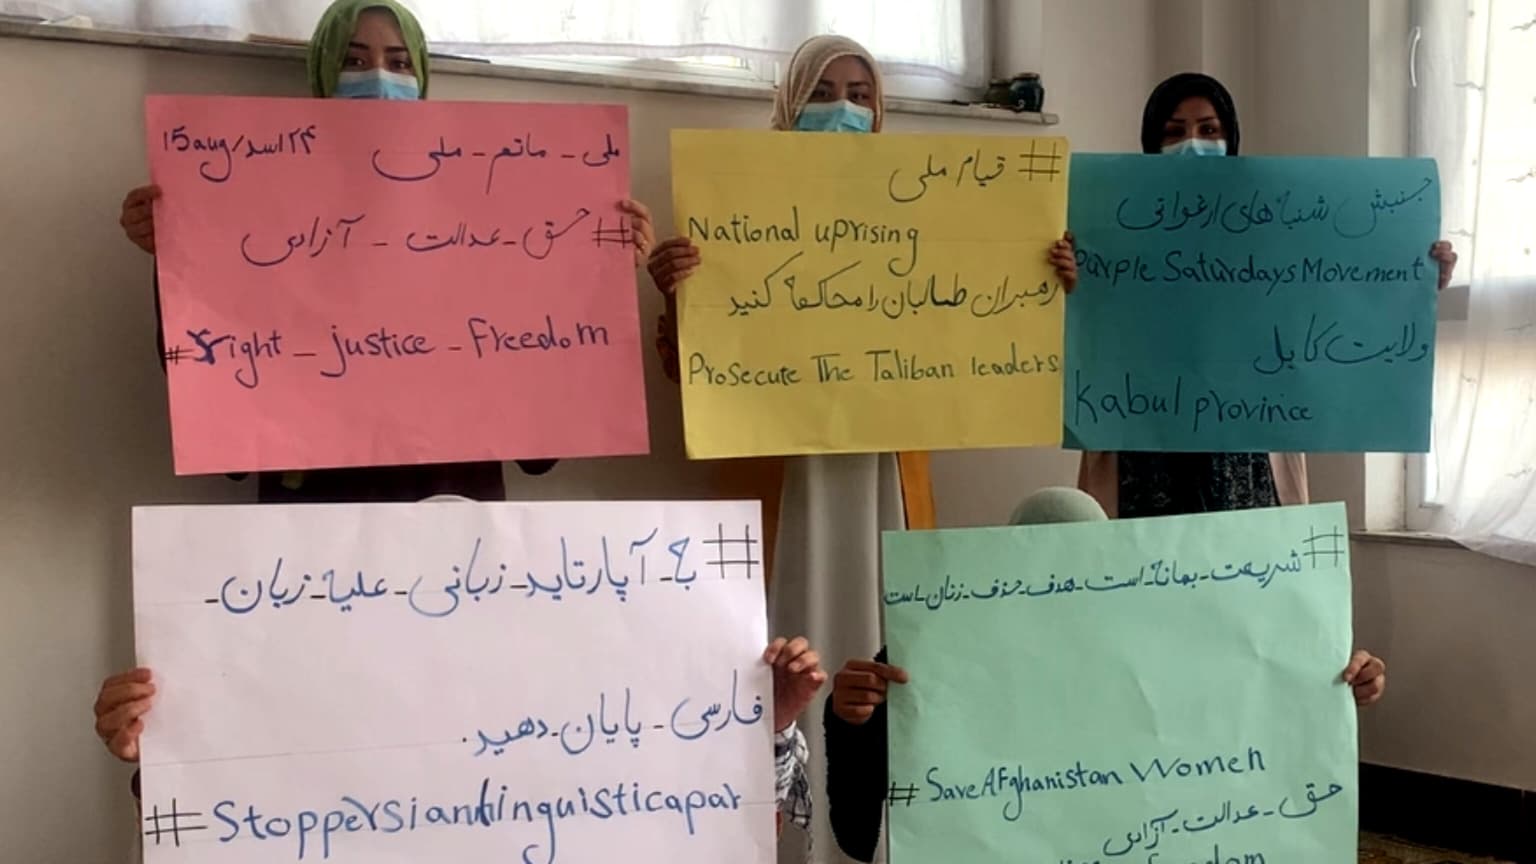 15 aug/۲۴ اسد ملی - ماتم - ملی
# حق - عدالت - آزادی
# right - justice - Freedom
# قیام ملی
National uprising
رهبران طالبان را محاکمه کنید
Prosecute The Taliban leaders
جنبش شنبه های ارغوانی
Purple Saturdays Movement
ولایت کابل
Kabul province
# ج - آپارتاید - زبانی - علیه - زبان -
فارسی - پایان - دهید .
# StoppersianLinguisticapar
# شریعت - بهانه - است - هدف - حذف - زنان - است
# SaveAfghanistan Women
حق - عدالت - آزادی